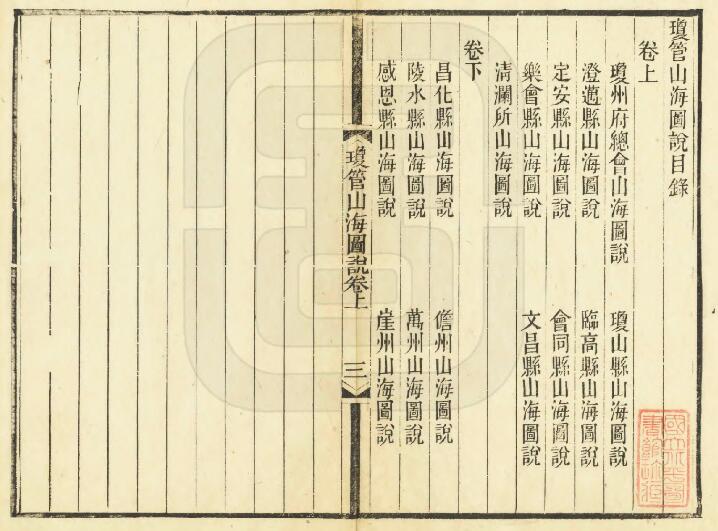 瓊管山海圖說目錄
卷上
瓊州府總會山海圖說 瓊山縣山海圖說
澄邁縣山海圖說 臨高縣山海圖說
定安縣山海圖說 會同縣山海圖說
樂會縣山海圖說 文昌縣山海圖說
清瀾所山海圖說
卷下
昌化縣山海圖說 儋州山海圖說
陵水縣山海圖說 萬州山海圖說
感恩縣山海圖說 崖州山海圖說
瓊管山海圖說卷上 三